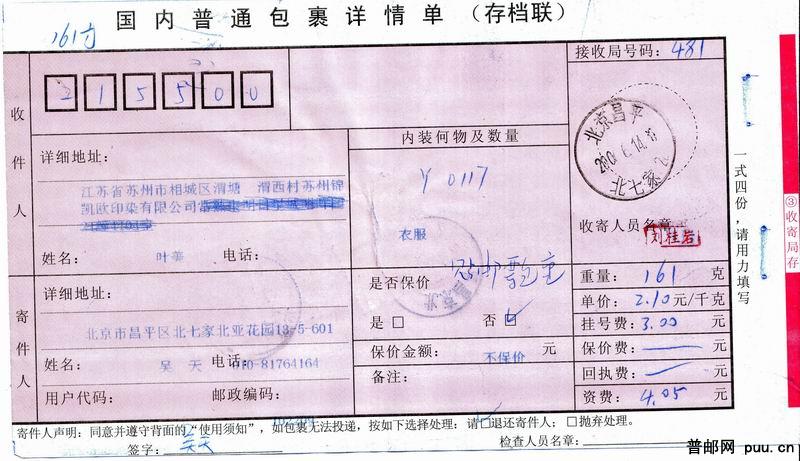 国内普通包裹详情单（存档联）
161寸
接收局号码：481
收件人
215500
详细地址：
江苏省苏州市相城区渭塘 渭西村苏州锦
凯欧印染有限公司
姓名： 叶美 电话：
内装何物及数量
Y 0117
衣服
北京昌平
北七家
收寄人员名章
刘桂岩
是否保价
是□ 否□
保价金额： 不保价 元
备注：
重量： 161 克
单价： 2.10 元/千克
挂号费： 3.00 元
保价费： 元
回执费： 元
资费： 4.05 元
寄件人
详细地址：
北京市昌平区北七家北亚花园13-5-601
姓名： 吴天 电话：010-81764164
用户代码： 邮政编码：
寄件人声明：同意并遵守背面的“使用须知”，如包裹无法投递，按如下选择处理：请□退还寄件人；□抛弃处理。
签字： 吴天
检查人员名章：
一式四份，请用力填写
③收寄局存
普邮网 puu.cn